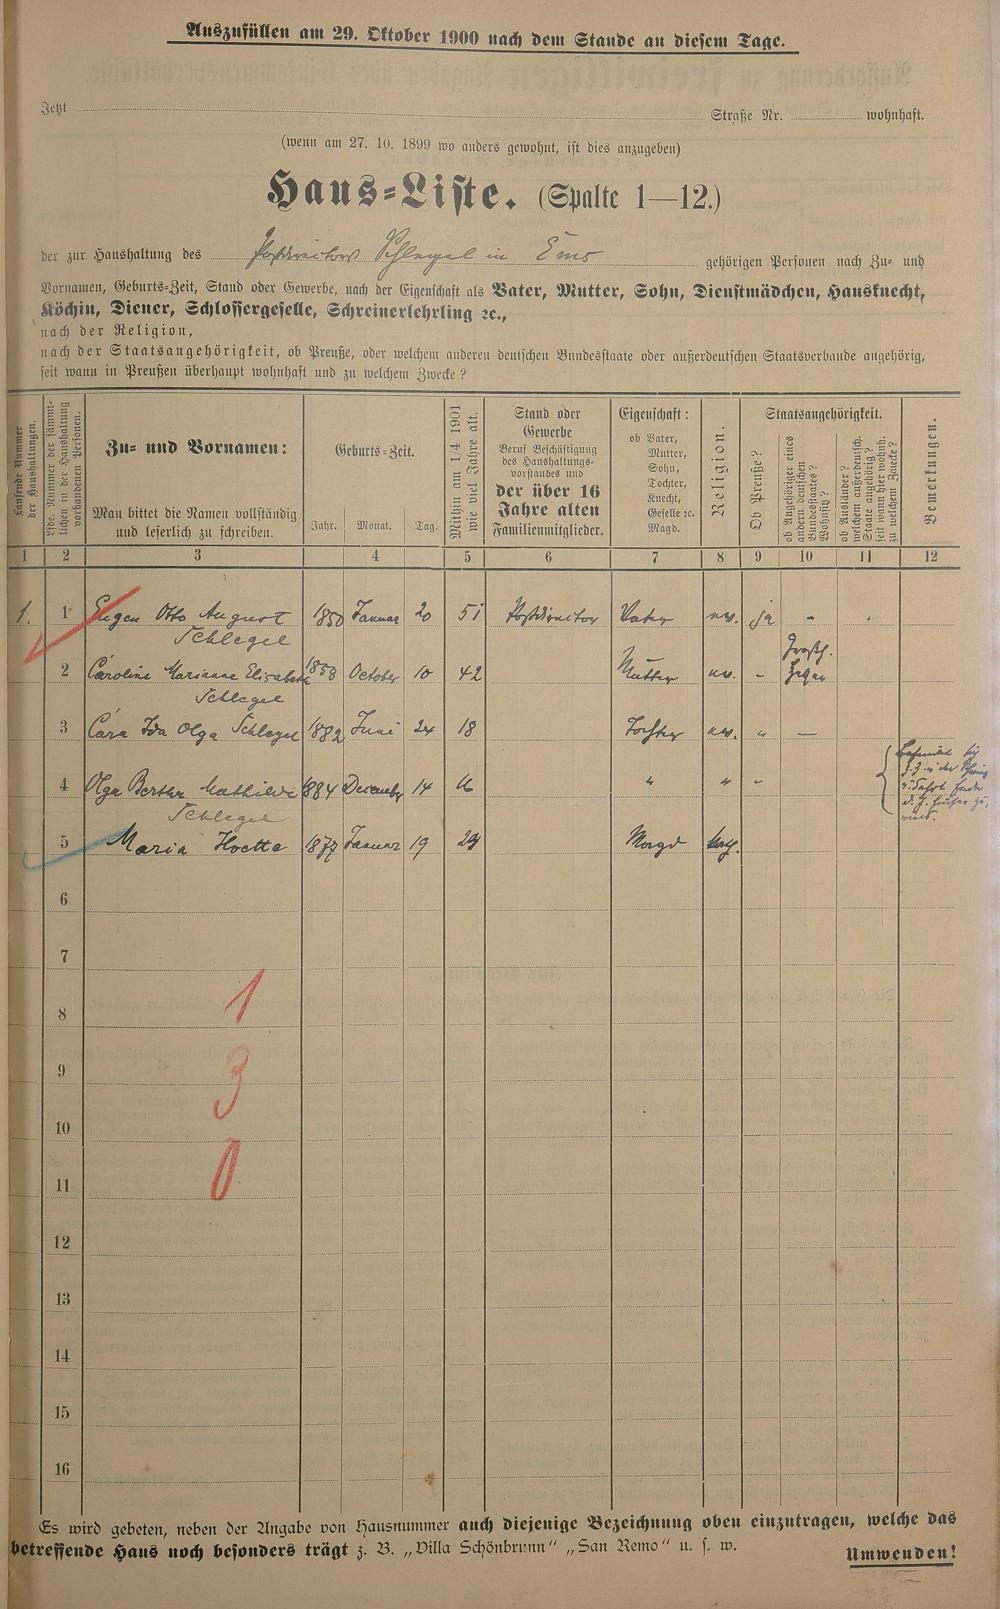 Auszufüllen am 29. Oktober 1900 nach dem Stande an diesem Tage.
Jetzt Straße Nr. wohnhaft.
(wenn am 27. 10. 1899 wo anders gewohnt, ist dies anzugeben)
Haus-Liste. (Spalte 1—12.)
der zur Haushaltung des Postdirektors Schlegel in Ems gehörigen Personen nach Zu- und
Vornamen, Geburts-Zeit, Stand oder Gewerbe, nach der Eigenschaft als Vater, Mutter, Sohn, Dienstmädchen, Hausknecht,
Köchin, Diener, Schlossergeselle, Schreinerlehrling ꝛc.,
nach der Religion,
nach der Staatsangehörigkeit, ob Preuße, oder welchem anderen deutschen Bundesstaate oder außerdeutschen Staatsverbande angehörig,
seit wann in Preußen überhaupt wohnhaft und zu welchem Zwecke?
Laufende Nummer
der Haushaltungen.
Lfde. Nummer der sämmt-
lichen in der Haushaltung
vorhandenen Personen.
Zu- und Vornamen:
Man bittet die Namen vollständig
und leserlich zu schreiben.
Geburts-Zeit.
Jahr. Monat. Tag.
Mithin am 1/4 1901
wie viel Jahre alt.
Stand oder
Gewerbe
Beruf Beschäftigung
des Haushaltungs-
vorstandes und
der über 16
Jahre alten
Familienmitglieder.
Eigenschaft:
ob Vater,
Mutter,
Sohn,
Tochter,
Knecht,
Geselle ꝛc.
Magd.
Religion.
Staatsangehörigkeit.
Ob Preuße?
ob Angehöriger eines
andern deutschen
Bundesstaates?
Wohnsitz?
ob Ausländer?
welchem außerdeutsch.
Staate angehörig?
seit wann hier wohnh.
zu welchem Zwecke?
Bemerkungen.
1 2 3 4 5 6 7 8 9 10 11 12
1. 1 Eugen Otto August 1850 Januar 20 51 Postdirektor Vater ev. ja "
Schlegel
Großh.
2 Caroline Marianne Elisabeth 1858 October 10 42 Mutter ev. "
Schlegel
3 Clara Ida Olga Schlegel 1882 Juni 24 18 Tochter ev. " —
4 Olga Bertha Mathilde 1884 December 14 16 " " "
Schlegel
5 Maria Hoette 1877 Januar 19 24 Magd kath.
6
7
1
8
3
9
10
0
11
12
13
14
15
16
Es wird gebeten, neben der Angabe von Hausnummer auch diejenige Bezeichnung oben einzutragen, welche das
betreffende Haus noch besonders trägt z. B. „Villa Schönbrunn“ „San Remo“ u. s. w.
Umwenden!